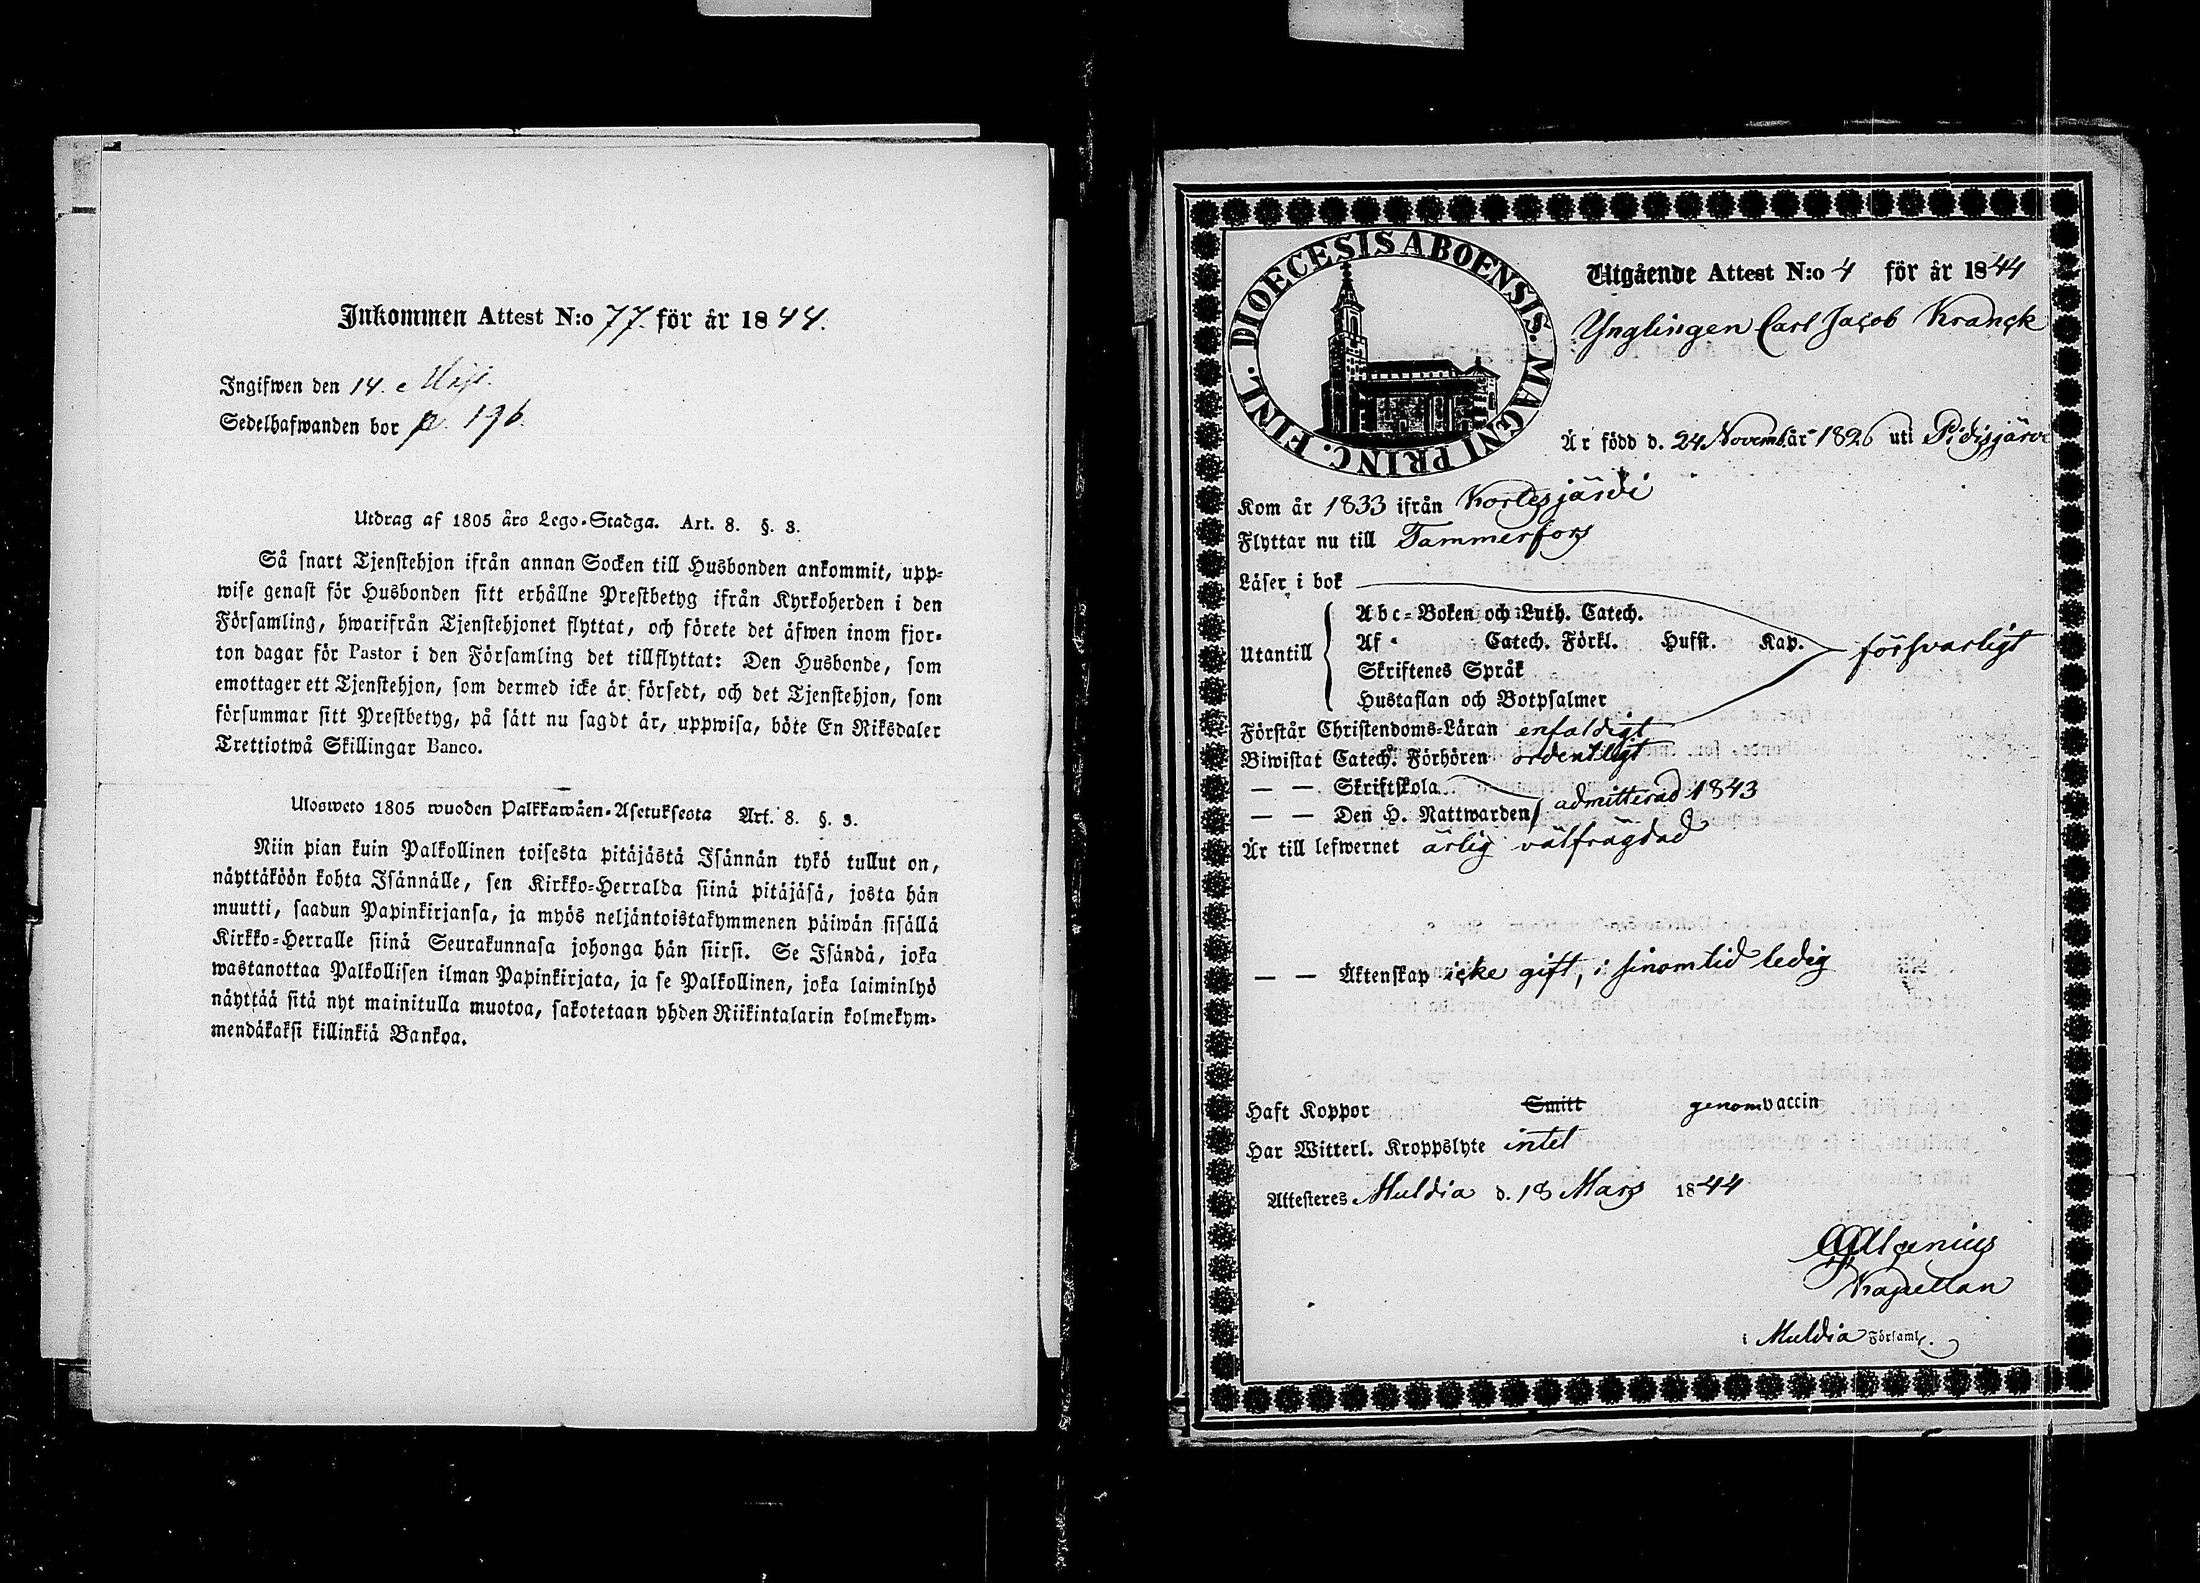 Inkommen Attest N:o 77. för år 1844.
Ingifwen den 14. Maji.
Sedelhafwanden bor p. 196.
Utdrag af 1805 års Lego-Stadga. Art. 8. §. 3.
Så snart Tjenstehjon ifrån annan Socken till Husbonden ankommit, upp-
wise genast för Husbonden sitt erhållne Prestbetyg ifrån Kyrkoherden i den
Församling, hwarifrån Tjenstehjonet flyttat, och förete det äfwen inom fjor-
ton dagar för Pastor i den Församling det tillflyttat: Den Husbonde, som
emottager ett Tjenstehjon, som dermed icke är försedt, och det Tjenstehjon, som
försummar sitt Prestbetyg, på sätt nu sagdt är, uppwisa, böte En Riksdaler
Trettiotwå Skillingar Banco.
Ulosweto 1805 wuoden Palkkawäen-Asetuksesta Art. 8. §. 3.
Niin pian kuin Palkollinen toisesta pitäjästä Isännän tykö tullut on,
näyttäköön kohta Isännälle, sen Kirkko-Herralda siinä pitäjäsä, josta hän
muutti, saadun Papinkirjansa, ja myös neljäntoistakymmenen päiwän sisällä
Kirkko-Herralle siinä Seurakunnasa johonga hän siirsi. Se Isändä, joka
wastanottaa Palkollisen ilman Papinkirjata, ja se Palkollinen, joka laiminlyö
näyttää sitä nyt mainitulla muotoa, sakotetaan yhden Riikintalarin kolmekym-
mendäkaksi killinkiä Bankoa.
DIOECESIS ABOENSIS. MAGNI PRINC. FINL.
Utgående Attest N:o 4 för år 1844
Ynglingen Carl Jacob Kranck
Är född d. 24 Novemb. år 1826 uti Pidisjärvi
Kom år 1833 ifrån Kortesjärvi
Flyttar nu till Tammerfors
Läser i bok
Utantill
Abc-Boken och Luth. Catech.
Af - Catech. Förkl. Husst. Kap. försvarligt
Skriftenes Språk
Hustaflan och Botpsalmer
Förstår Christendoms-Läran enfaldigt
Biwistat Catech. Förhören ordentligt
— — Skriftskola
— — Den H. Nattwarden admitterad 1843
Är till lefwernet ärlig välfrägdad
— — Äktenskap icke gift, i sinom tid ledig
Haft Koppor Smitt genom vaccin
Har Witterl. Kroppslyte intet
Attesteres Muldia d. 18 Mars 1844
Kapellan
i Muldia Församl.